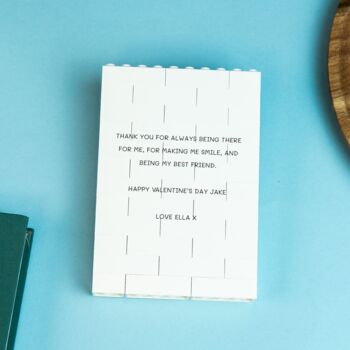 THANK YOU FOR ALWAYS BEING THERE
FOR ME, FOR MAKING ME SMILE, AND
BEING MY BEST FRIEND.
HAPPY VALENTINE'S DAY JAKE
LOVE ELLA X